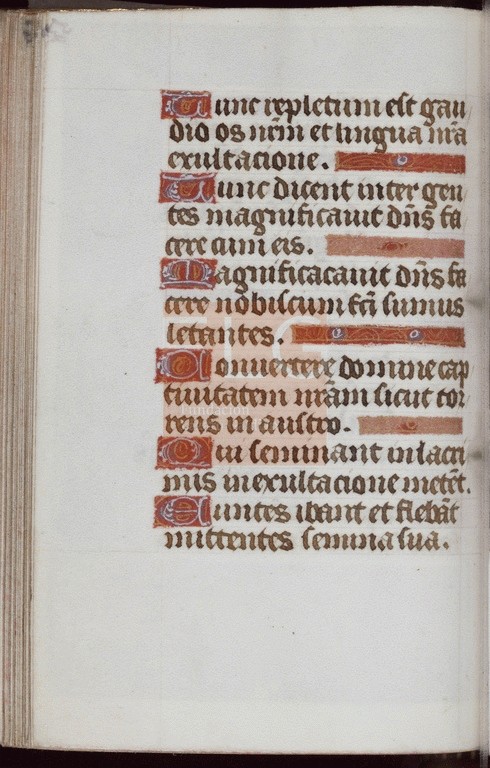 Tunc repletum est gau
dio os nr̄m et lingua nr̄a
exultacione.
Tunc dicent inter gen
tes magnificauit dn̄s fa
cere cum eis.
Magnificacauit dn̄s fa
cere nobiscum fc̄i sumus
letantes.
Conuertere domine cap
tiuitatem nr̄am sicut tor
rens in austro.
Fundación
Qui seminant in lacri
mis in exultacione metēt.
Euntes ibant et flebāt
mittentes semina sua.